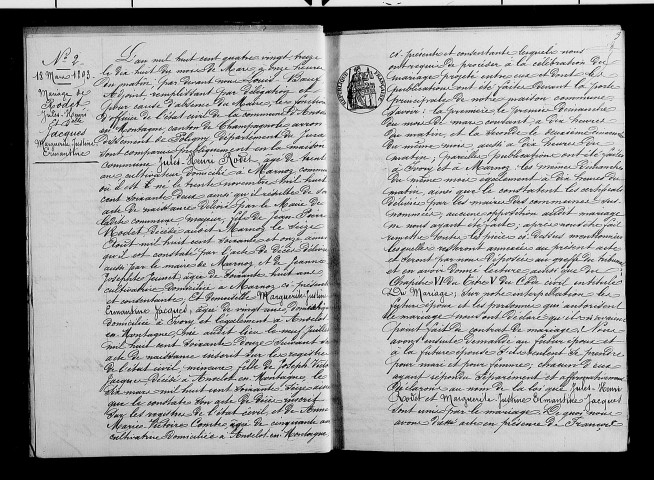 N° 2.
18 Mars 1893.
Mariage de
Rodet
Jules Henri
et Delle
Jacques
Marguerite Justine
Ermantine
L'an mil huit cent quatre vingt treize
le dix huit du mois de Mars à onze heures
du matin, par devant nous Louis
Adjoint remplissant par délégation et
pour cause d'absence du Maire, les fonctions
d'officier de l'état civil de la commune d'Andelot
en Montagne, canton de Champagnole, arron
dissement de Poligny, département du Jura
sont comparus publiquement en la maison
commune Jules Henri Rodet, âgé de trente
ans cultivateur domicilié à Marnoz commune
où il est né le trente novembre mil huit
cent soixante deux ainsi qu'il résulte de son
acte de naissance délivré par le Maire de
ladite commune, majeur, fils de Jean
Rodet décédé audit Marnoz le seize
Août mil huit cent soixante et onze ainsi
qu'il est constaté par l'acte de décès délivré
aussi par le maire de Marnoz et de Jeanne
Josephte âgée de soixante huit ans
cultivatrice domiciliée à Marnoz ci-présente
et consentante. Et demoiselle Marguerite Justine
Ermantine Jacques, âgée de vingt ans
domiciliée à Ivory et légalement à Andelot
en Montagne, née audit lieu le neuf Juillet
mil huit cent soixante douze suivant son
acte de naissance inscrit sur les registres
de l'état civil, mineure, fille de Joseph
Jacques décédé à Andelot en Montagne le
mai mil huit cent soixante seize ainsi
que le constate son acte de décès inscrit
sur les registres de l'état civil, et de Anne
Marie Victoire Combe âgée de cinquante ans
cultivatrice domiciliée à Andelot en Montagne
3
ci-présente et consentante lesquels nous
ont requis de procéder à la célébration du
mariage projeté entre eux et dont les
publications ont été faites devant la porte
principale de notre maison commune
savoir: la première le premier dimanche
du mois de mars courant à dix heures
du matin, et la seconde le deuxième dimanche
du même mois, aussi à dix heures du
matin; pareilles publications ont été faites
à Ivory et à Marnoz les mêmes dimanches
du même mois également à dix heures du
matin, ainsi que le constatent les certificats
délivrés par les maires des communes sus
nommées, aucune opposition audit mariage
ne nous ayant été faite, après nous être fait
remettre toutes les pièces ci-dessus mentionnées
lesquelles resteront annexées au présent acte
et seront par nous déposées au greffe du tribunal
et en avoir donné lecture ainsi que du
Chapitre VI du titre V du Code civil intitulé
Du Mariage; sur notre interpellation les
futurs époux et les personnes qui autorisent
le mariage nous ont déclaré qu'il n'a
point fait de contrat de mariage. Nous
avons ensuite demandé au futur époux et
à la future épouse s'ils veulent se prendre
pour mari et pour femme, chacun d'eux
ayant répondu séparément et affirmativement
déclarons au nom de la loi que Jules Henri
Rodet et Marguerite Justine Ermantine Jacques
sont unis par le mariage. De quoi nous
avons dressé acte en présence de François